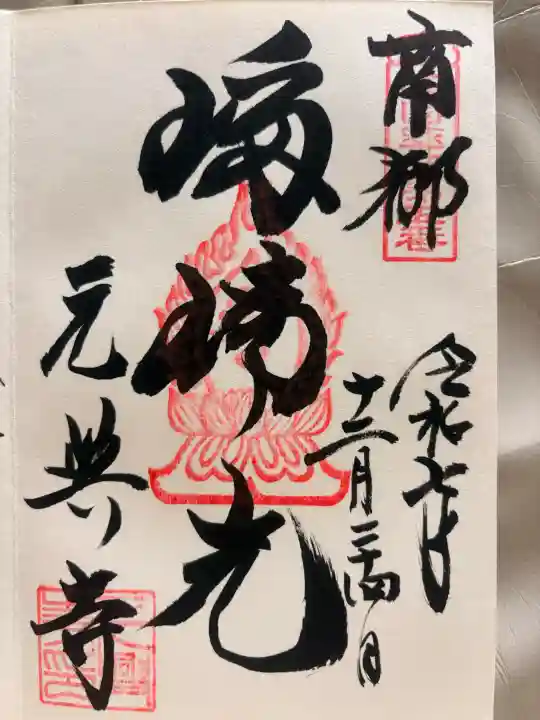 南都
令和七年
十二月二十四日
瑠璃光
元興寺